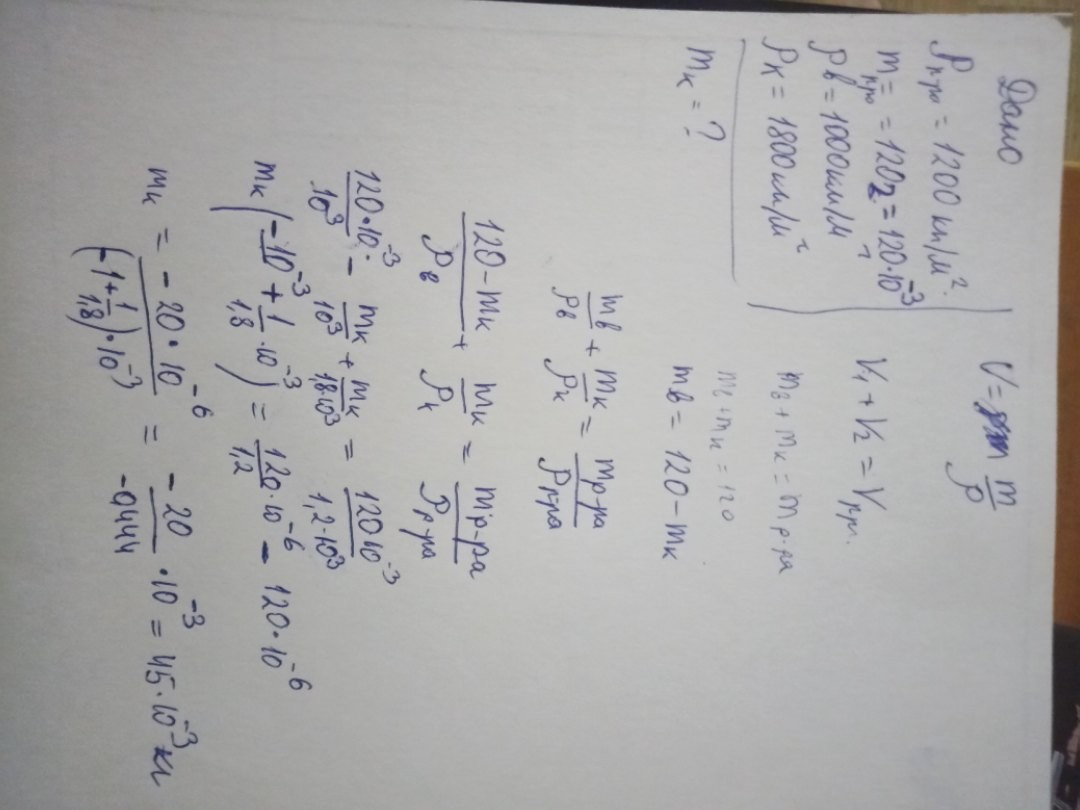 Дано
ρ р-ра = 1200 кг/м².
m р-ра = 120г = 120·10⁻³
ρв = 1000кг/м²
ρк = 1800кг/м²
mк = ?
V = m/ρ
V₁ + V₂ = Vр-р.
mв + mк = mр-ра
mв + mк = 120
mв = 120 - mк
mв/ρв + mк/ρк = mр-ра/ρр-ра
(120 - mк)/ρв + mк/ρк = mр-ра/ρр-ра
120·10⁻³/10³ - mк/10³ + mк/1,8·10³ = 120·10⁻³/1,2·10³
mк(-10⁻³ + 1/1,8·10⁻³) = 120/1,2·10⁻⁶ - 120·10⁻⁶
mк = - 20·10⁻⁶/(-1+1/1,8)·10⁻³ = -20/-0,444 ·10⁻³ = 45·10⁻³кг